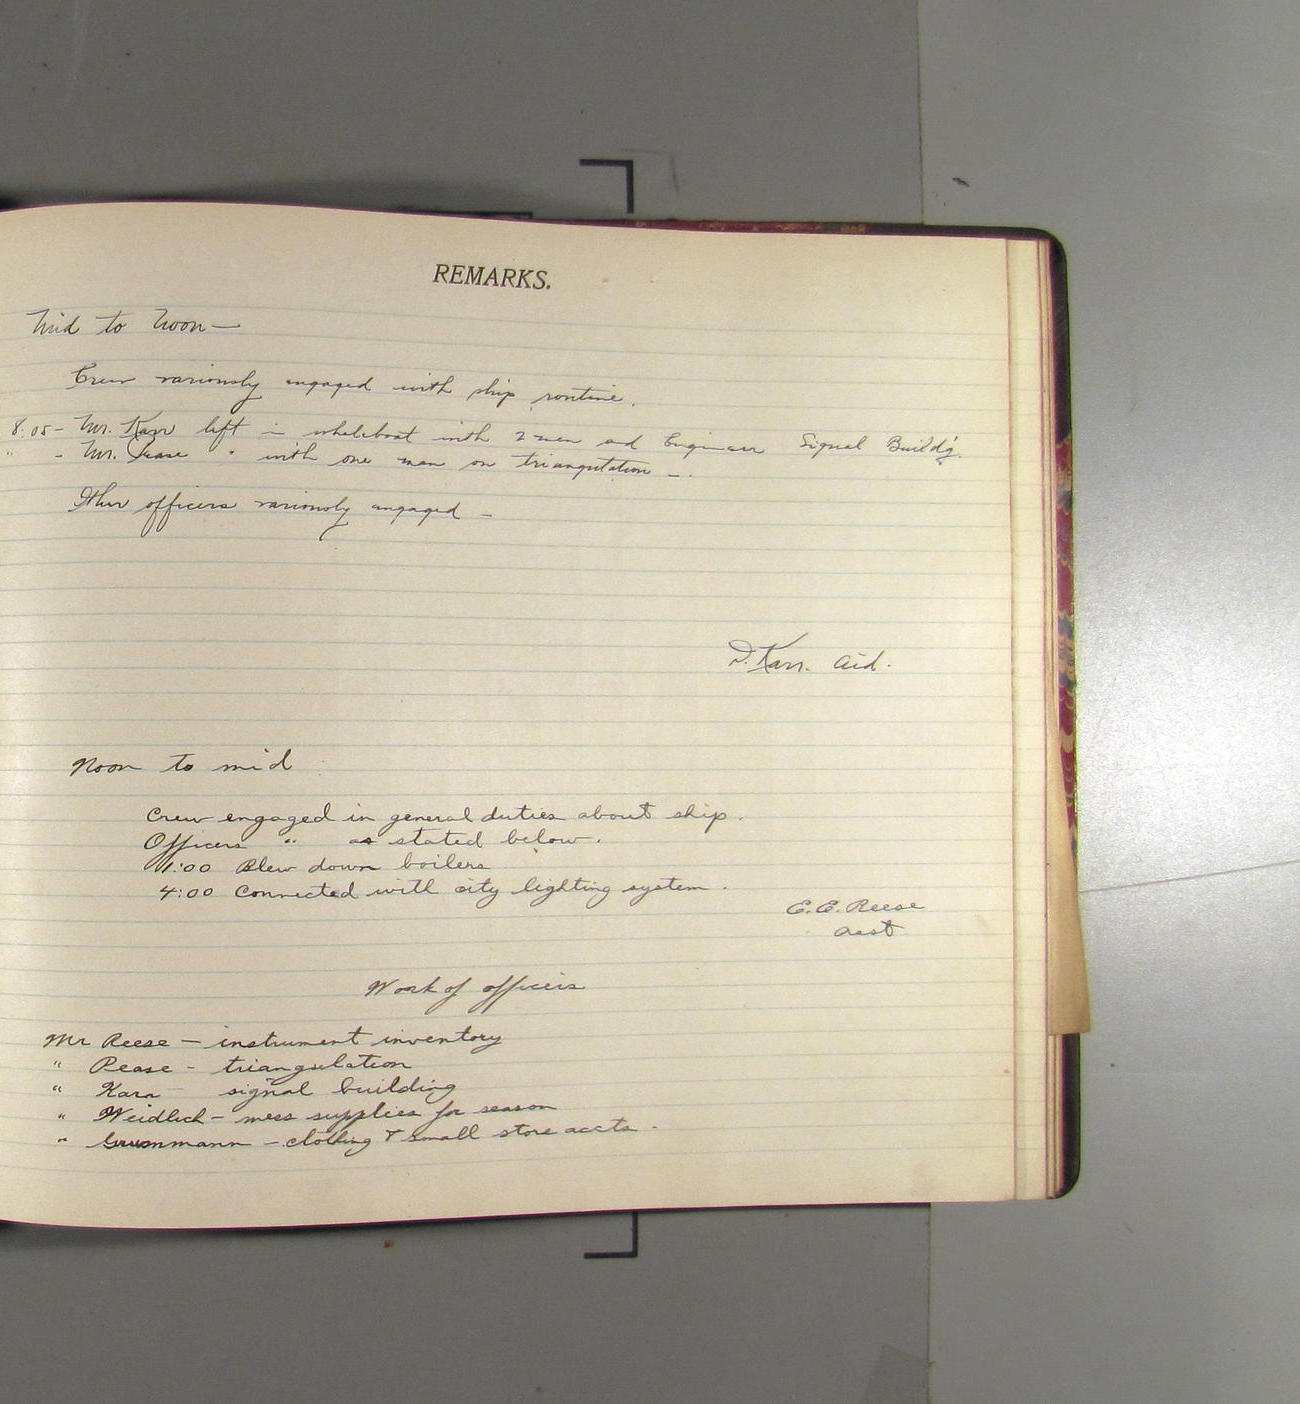 REMARKS.
Mid to Noon —
Crew variously engaged with ship routine.
8:05 - Mr. Karr left in whaleboat with 2 men and Engineer Signal Build'g.
" - Mr. Pease " with one man on triangulation —.
Other officers variously engaged —
D. Karr. Aid.
Noon to mid
Crew engaged in general duties about ship.
Officers " as stated below.
1:00 Blew down boilers
4:00 Connected with city lighting system.
E. E. Reese
Asst
Work of officers
Mr Reese — instrument inventory
" Pease - triangulation
" Karr signal building
" Weidlich - mess supplies for season
" — clothing & small store accts.